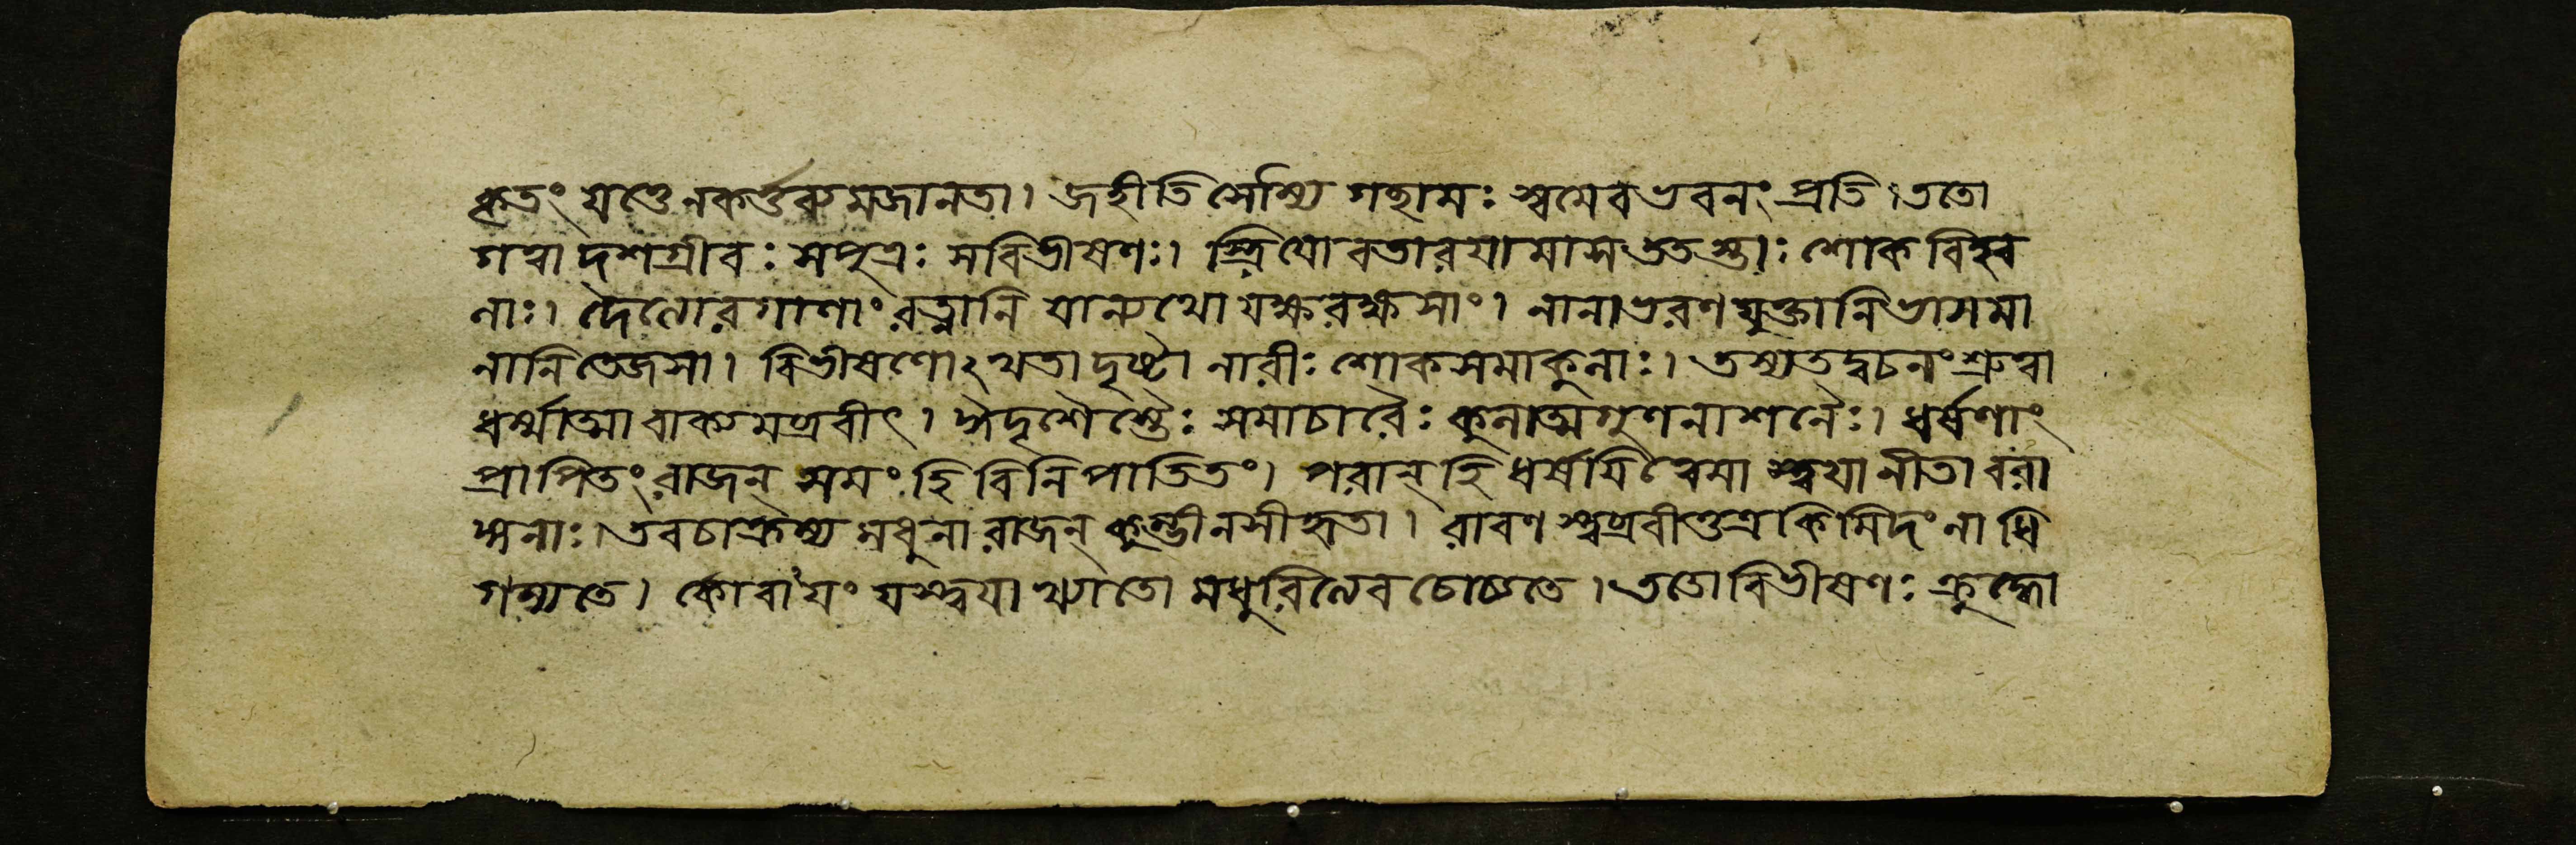 কৃতং যত্তেনকর্ত্তব্যমজানতা। জহীতিসৌম্যি গচ্ছামঃ স্বমেবভবনং প্রতি। ততো
গত্বাদশগ্রীবঃ সপুত্রঃ সবিভীষণঃ। স্ত্রিযোবতারযামাসততস্তাঃ শোকবিহ্বল
লাঃ। দৈত্যোরগাণাং রত্নানি যান্যথো যক্ষরক্ষসাং। নানাভরণযুক্তানিভাসমা
নানিতেজসা। বিভীষণোঽথতাদৃষ্ট্বা নারীঃ শোকসমাকুলাঃ। তস্যতদ্বচনংশ্রুত্বা
ধর্ম্মাত্মাবাক্যমব্রবীৎ। ঈদৃশৈস্তৈঃ সমাচারৈঃ কুলাত্মগুণনাশনৈঃ। ধর্ষণাং
প্রাপিতংরাজন্ সমং হি বিনিপাতিতং। পরান্হি ধর্ষযিত্বেমা স্ত্বযানীতাবরা
ঙ্গনাঃ। তবচাক্রম্য মধুনারাজন্ কুম্ভীনসীহৃতা। রাবণস্ত্বব্রবীত্তত্রকিমিদংনাধি
গম্যতে। কোবাযং যস্ত্বযাখ্যাতো মধুরিত্যেবচোচ্যতে। ততোবিভীষণঃ ক্রুদ্ধো